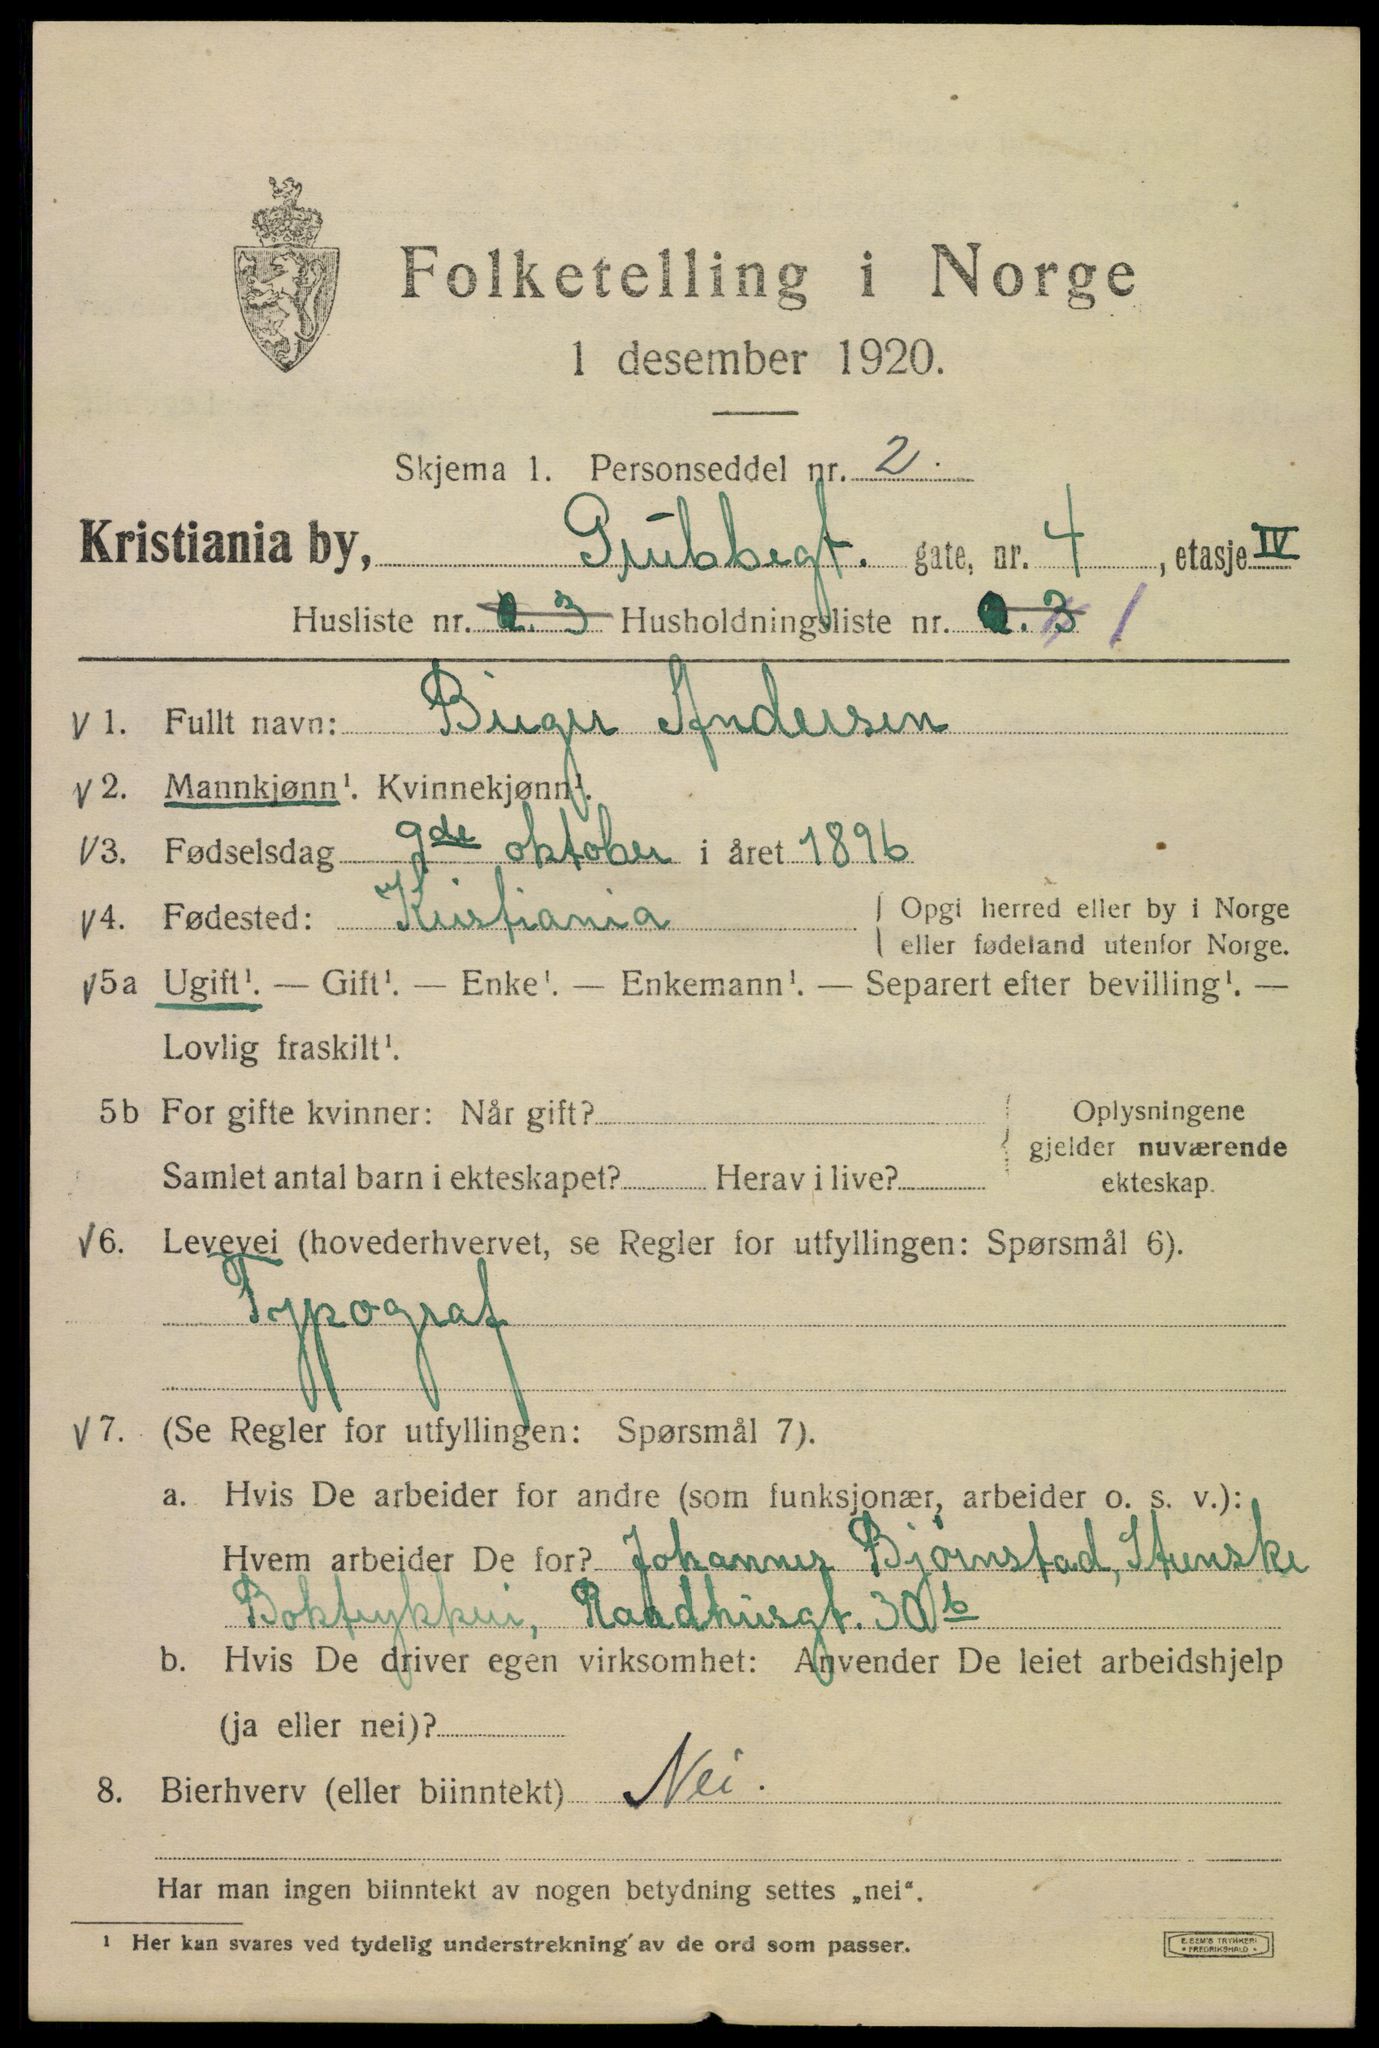 Folketelling i Norge
1 desember 1920.
Skjema 1. Personseddel nr. 2.
Kristiania by, Grubbegt. gate, nr. 4, etasje IV
Husliste nr. 3 Husholdningsliste nr. 3 1
V 1. Fullt navn: Birger Andersen
V 2. Mannkjønn¹. Kvinnekjønn¹.
V 3. Fødselsdag 9de oktober i året 1896
V 4. Fødested: Kristiania Opgi herred eller by i Norge
eller fødeland utenfor Norge.
V 5a Ugift¹. — Gift¹. — Enke¹. — Enkemann¹. — Separert efter bevilling¹. —
Lovlig fraskilt¹.
5b For gifte kvinner: Når gift? Oplysningene
gjelder nuværende
Samlet antal barn i ekteskapet? Herav i live? ekteskap.
V 6. Levevei (hovederhvervet, se Regler for utfyllingen: Spørsmål 6).
Typograf
V 7. (Se Regler for utfyllingen: Spørsmål 7).
a. Hvis De arbeider for andre (som funksjonær, arbeider o. s. v.):
Hvem arbeider De for? Johannes Bjørnstad, Stenske
Boktrykkeri, Raadhusgt. 30b
b. Hvis De driver egen virksomhet: Anvender De leiet arbeidshjelp
(ja eller nei)?
8. Bierhverv (eller biinntekt) Nei.
Har man ingen biinntekt av nogen betydning settes „nei“.
¹ Her kan svares ved tydelig understrekning av de ord som passer.
E. SEM'S TRYKKERI
• FREDRIKSHALD •